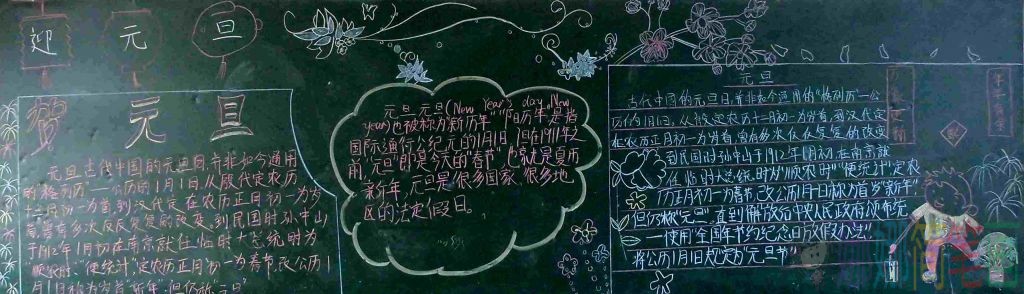 迎 元 旦
贺 元 旦
元旦古代中国的元旦日并非如今通用
的"格列历"——公历的1月1日.从殷代定农历
十二月初一为首到汉代定在农历正月初一为岁
首,曾有多次反反复复的改变,到民国时孙中山
于1912年1月初在南京就任临时大总统时为
"顺农时","便统计",定农历正月初一为春节,改公历1
月1日称为岁首"新年",但仍称"元旦"
元旦,元旦(New Year's day,New
year)也被称为"新历年""阳历年"是指
国际通行公纪元的1月1日,但在1911年之
前,"元旦"即是今天的"春节",也就是夏历
新年,元旦是很多国家、很多地
区的法定假日。
元旦
古代中国的元旦日,并非如今通用的"格列历"一公
历的1月1日,从殷代定农历十二月初一为岁首,到汉代定
在农历正月初一为岁首,曾有多次反反复复的改变
到民国时孙中山于1912年1月初,在南京就
任临时大总统时为"顺农时""便统计"定农
历正月初一为春节,改公历1月1日称为岁首"新年"
但仍称"元旦",直到解放后中央人民政府颁布统
一使用"全国年节约纪念日放假办法",
将公历1月1日规定为"元旦节"
年年有余